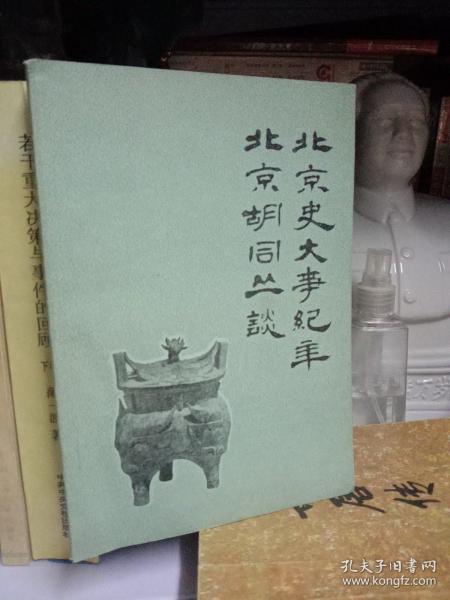 北京史大事紀年
北京胡同丛談
若干重大决策与事件的回顾
下
孔夫子旧书网
www.kongfz.com